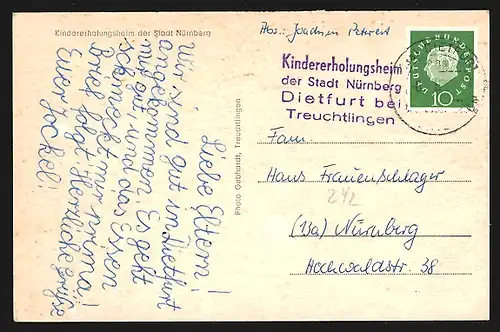 Kindererholungsheim der Stadt Nürnberg
Liebe Eltern!
Wir sind gut in Dietfurt
angekommen. Es geht
mir gut, und das Essen
schmeckt mir prima!
Brief folgt! Herzliche Grüße
Euer Jockel!
Photo Gebhardt, Treuchtlingen
Abs.: Joachim
Kindererholungsheim
der Stadt Nürnberg
Dietfurt bei
Treuchtlingen
DEUTSCHE BUNDESPOST
10
Fam.
Hans Frauenschlager
242
(13a) Nürnberg
Hochwaldstr. 38